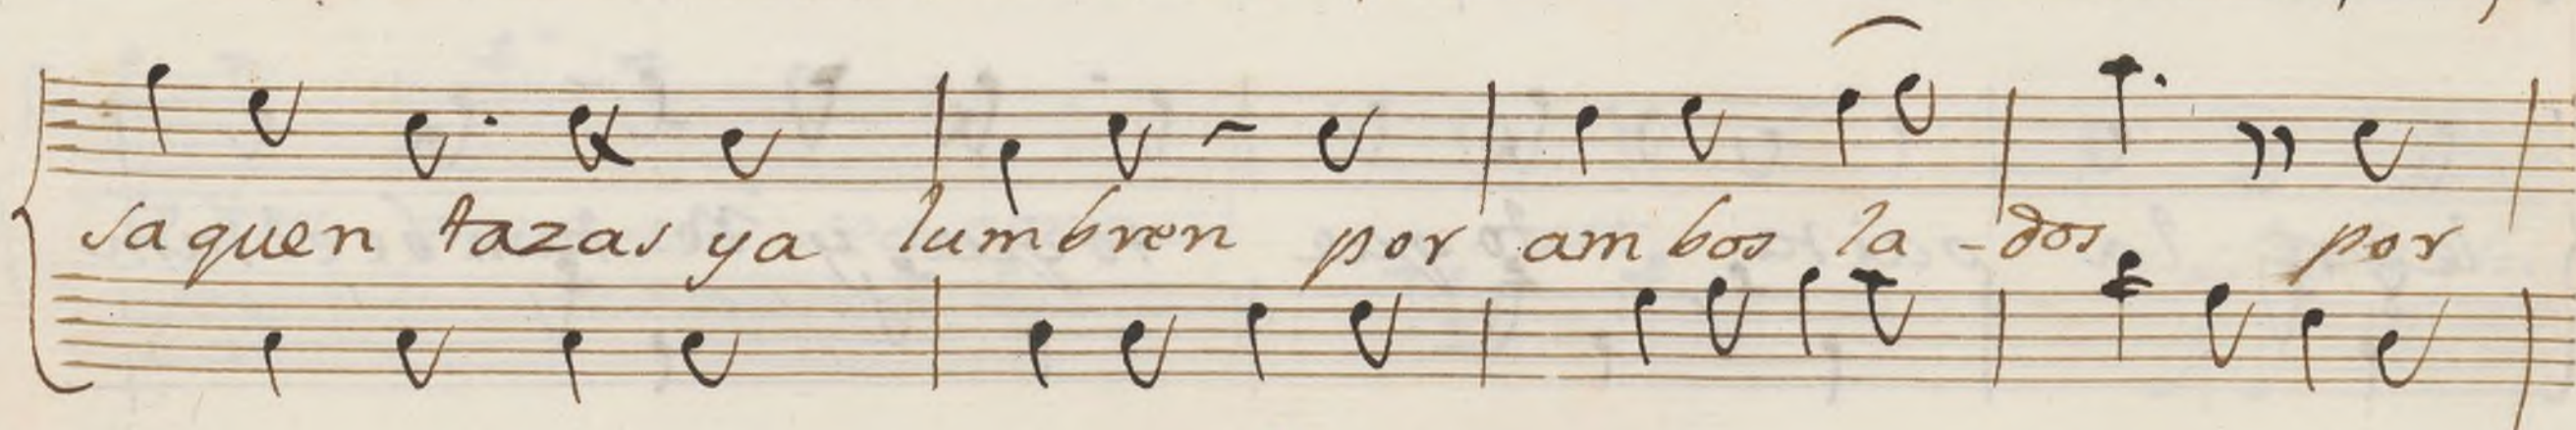 saquen tazas ya lumbren por ambos la-dos por